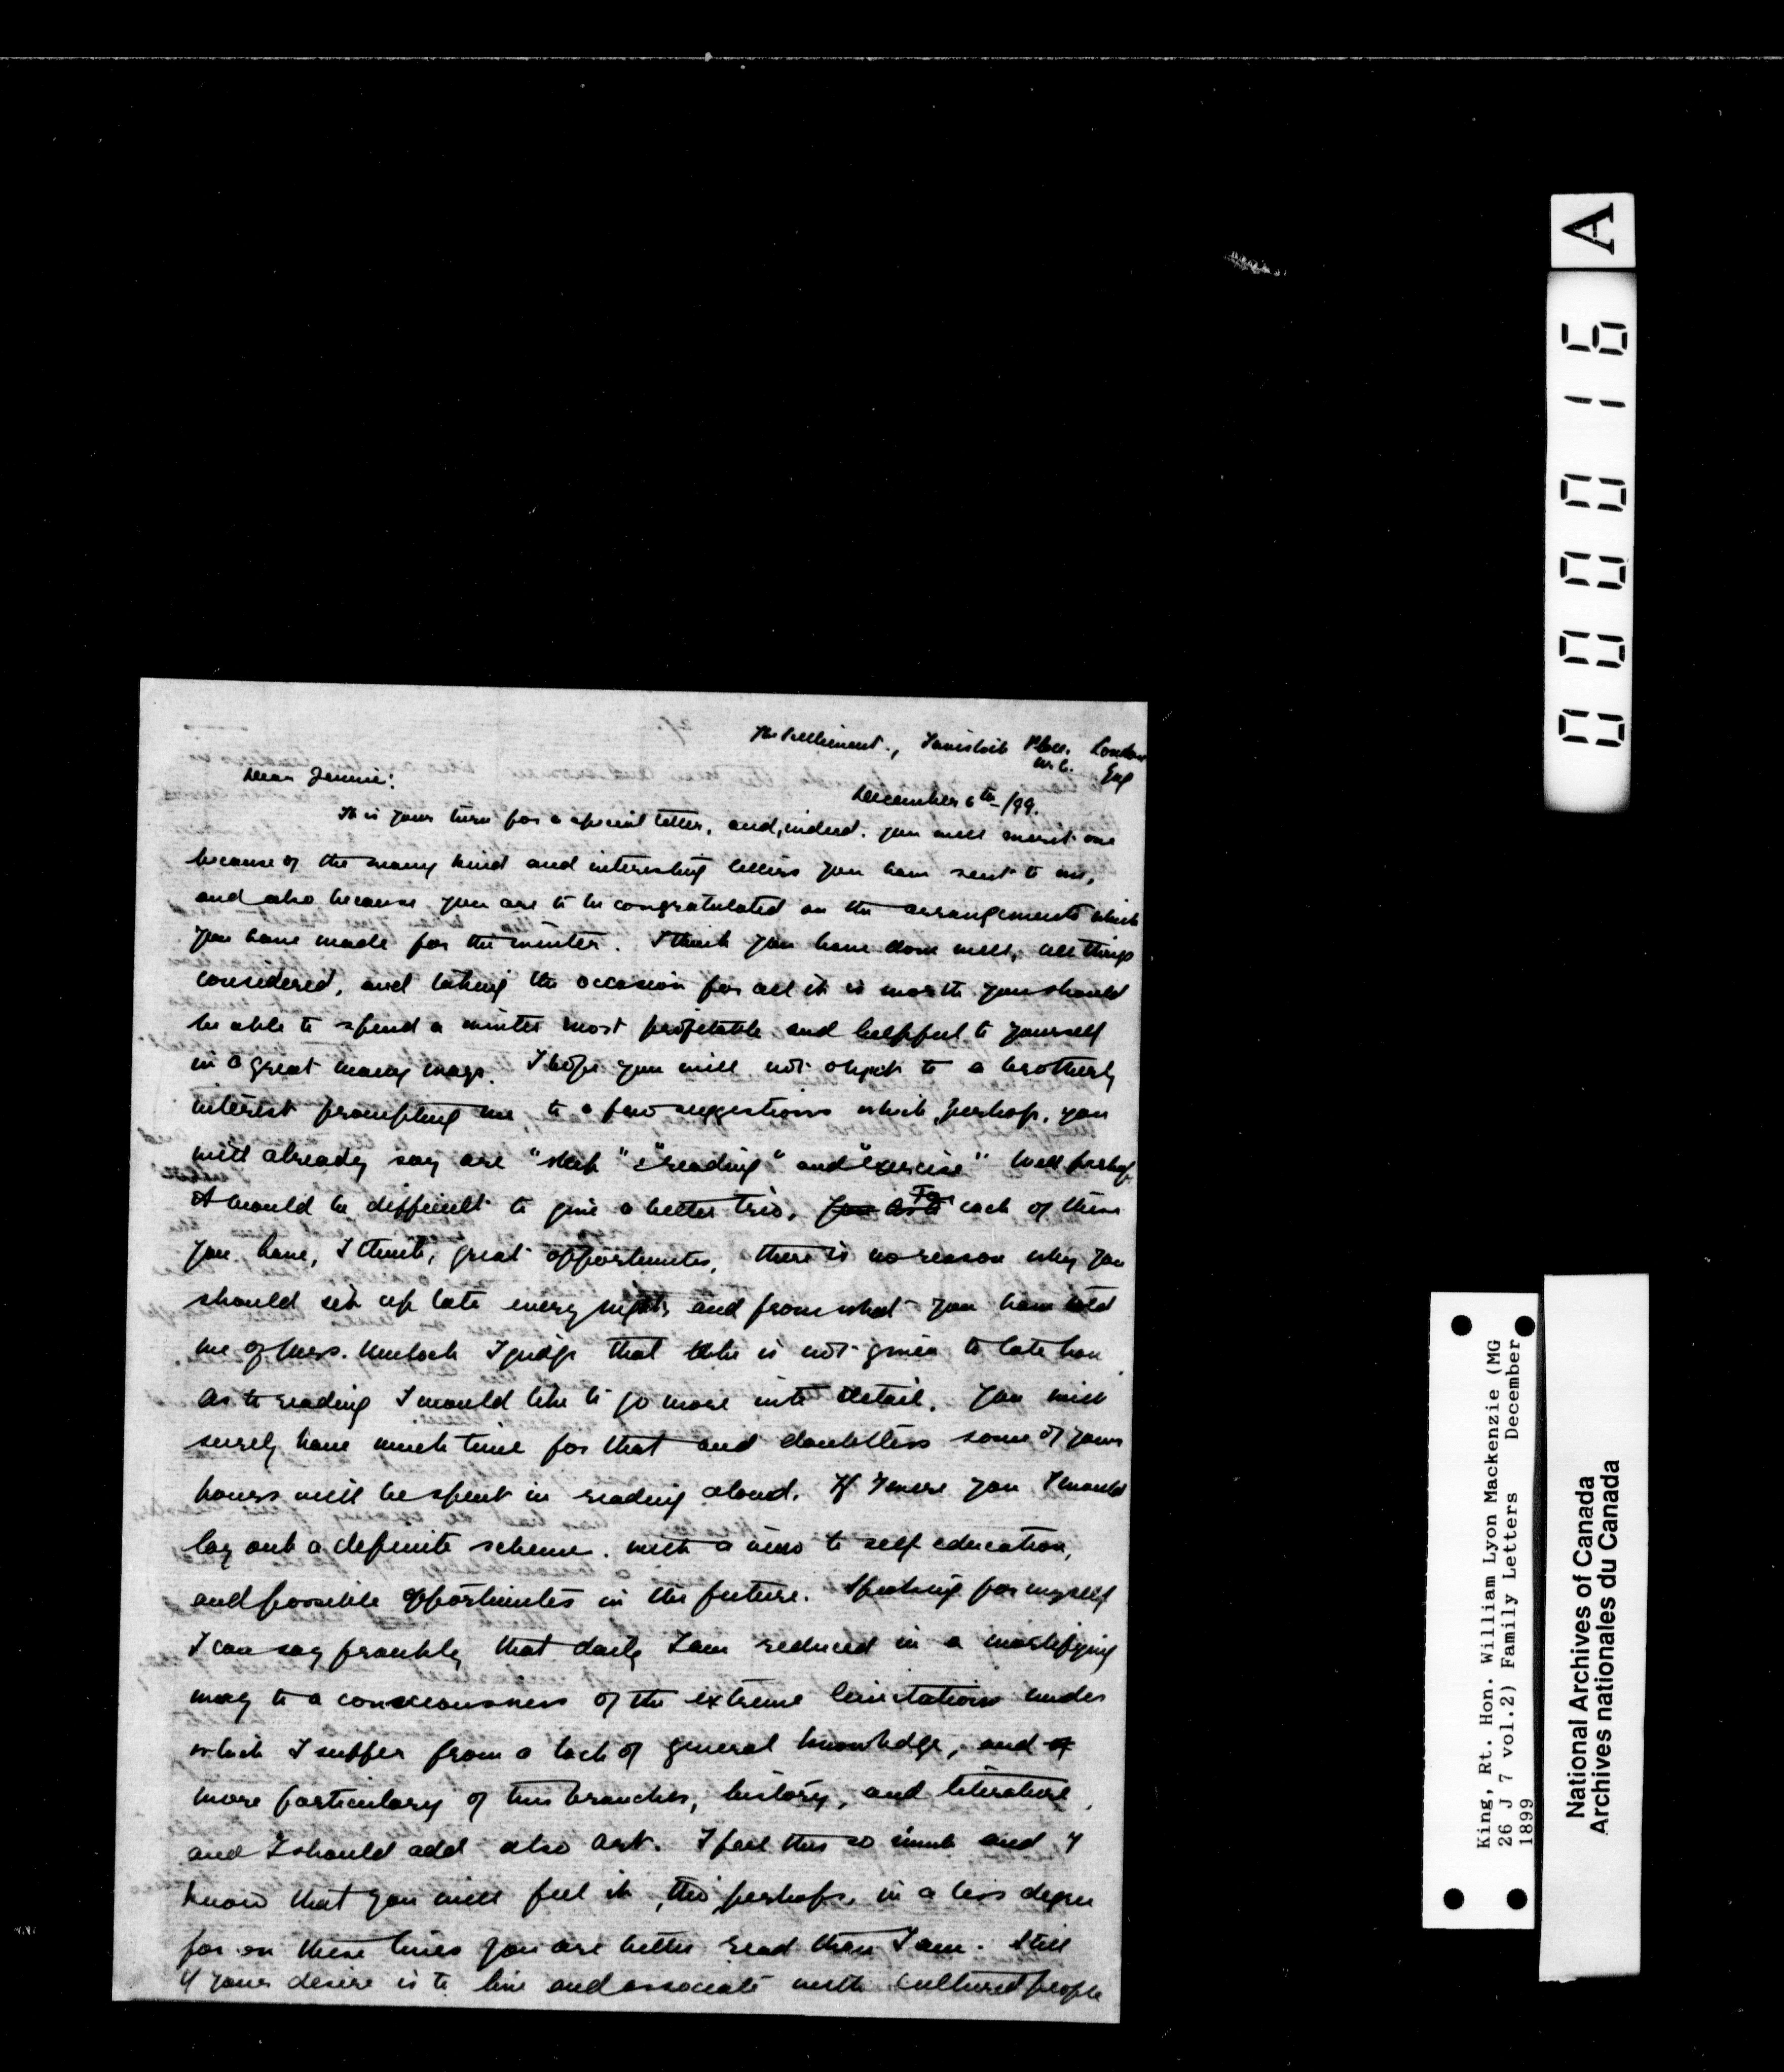 The Settlement., Tavistock Place, London
W.C. Eng
Dear Jennie:
December 6th/99.
It is your turn for a special letter, and, indeed, you well merit one
because of the many kind and interesting letters you have sent to me,
and also because you are to be congratulated on the arrangements which
you have made for the winter. I think you have done well, all things
considered, and taking the occasion for all it is worth you should
be able to spend a winter most profitable and helpful to yourself
in a great many ways. I hope you will not object to a brotherly
interest prompting me to a few suggestions which, perhaps, you
will already say are "sleep" "reading" and "exercise" Well perhaps
it would be difficult to give a better trio. For each of these
you have, I think, great opportunities, there is no reason why you
should sit up late every night and from what you have told
me of Mrs. Mulock I judge that she is not given to late hou
As to reading I would like to go more into detail. You will
surely have much time for that and doubtless some of your
hours will be spent in reading aloud. If I were you I would
lay out a definite scheme. with a view to self education,
and possible opportunities in the future. Speaking for myself
I can say frankly that daily I am reduced in a mortifying
way to a consciousness of the extreme limitations under
which I suffer from a lack of general knowledge, and of
more particularly of two branches, history, and literature,
and I should add also art. I feel this so much and I
know that you will feel it, tho' perhaps, in a less degree
for on these lines you are better read than I am. Still
if your desire is to live and associate with cultured people
A
000016
King, Rt. Hon. William Lyon Mackenzie (MG
26 J 7 vol.2) Family Letters December
1899
National Archives of Canada
Archives nationales du Canada